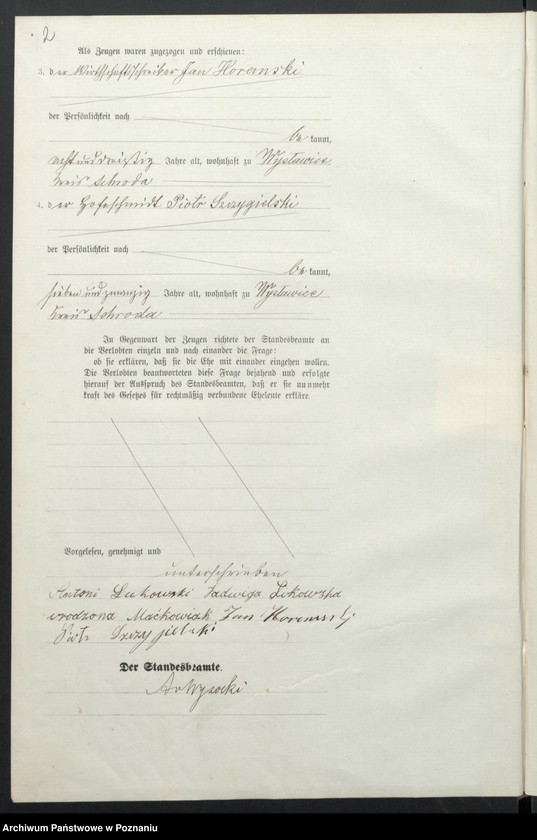 2
Als Zeugen waren zugezogen und erschienen:
3. der Wirthschaftsschreiber Jan Horenski
der Persönlichkeit nach
be kannt,
achtunddreißig Jahre alt, wohnhaft zu Wyslawice
Kreis Schroda
4. der Hofeschmidt Piotr Szczygielski
der Persönlichkeit nach
be kannt,
sieben und zwanzig Jahre alt, wohnhaft zu Wyslawice
Kreis Schroda
In Gegenwart der Zeugen richtete der Standesbeamte an
die Verlobten einzeln und nach einander die Frage:
ob sie erklären, daß sie die Ehe mit einander eingehen wollen.
Die Verlobten beantworteten diese Frage bejahend und erfolgte
hierauf der Ausspruch des Standesbeamten, daß er sie nunmehr
kraft des Gesetzes für rechtmäßig verbundene Eheleute erkläre.
Vorgelesen, genehmigt und
unterschrieben
Antoni Lukowski Jadwiga Lukowska
urodzona Maćkowiak Jan Horenski
Piotr Szczygielski
Der Standesbeamte.
Wysocki
Archiwum Państwowe w Poznaniu